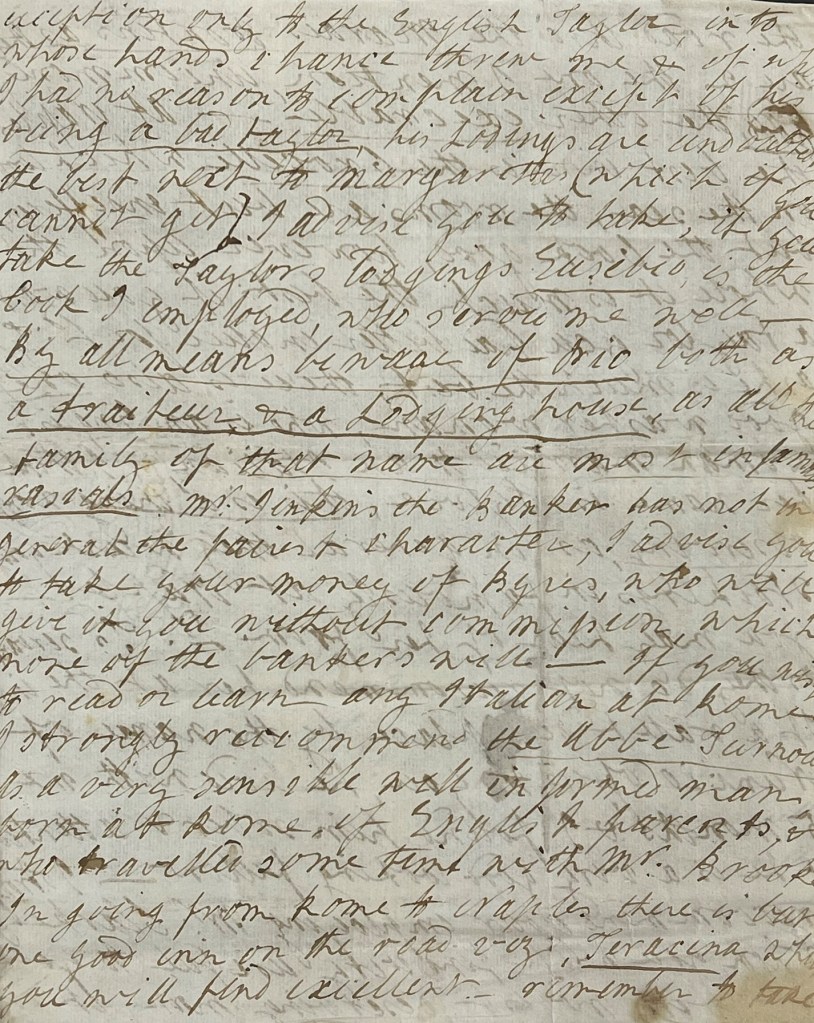 exception only to the English Taylor, into
whose hands chance threw me, & of
I had no reason to complain except of his
being a bad taylor, his Lodings are
the best next to margaritas (which if you
cannot get) I advise you to take, if you
take the Taylors lodgings Eusebio, is the
Cook I employed, who servd me well —
By all means beware of Pio both as
a traiteur, & a Lodging house, as all the
family of that name are most
rascals. Mr. Jenkins the Banker has not in
general the fairest character, I advise you
to take your money of Byres, who will
give it you without commission, which
none of the bankers will — If you
to read or learn any Italian at Rome
I strongly reccommend the Abbé
as a very sensible well informed man
born at Rome, of English parents, &
who travelled some time with Mr. Brook
In going from Rome to Naples there is but
one good inn on the road viz, Teracina
you will find excellent — remember to take